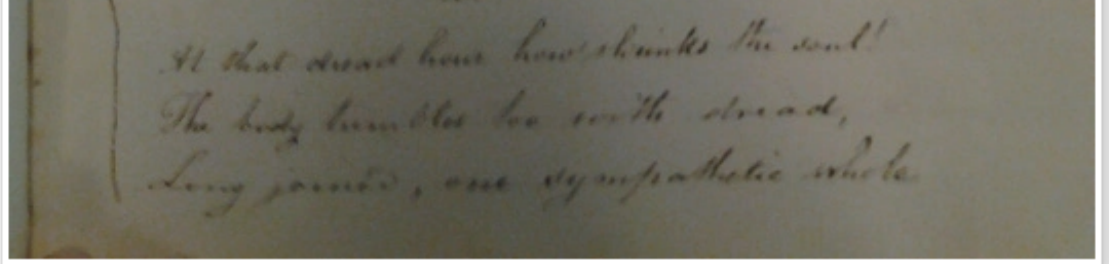 At that dread hour how shrinks the soul!
The body trembles too with dread,
Long joined, one sympathetic whole